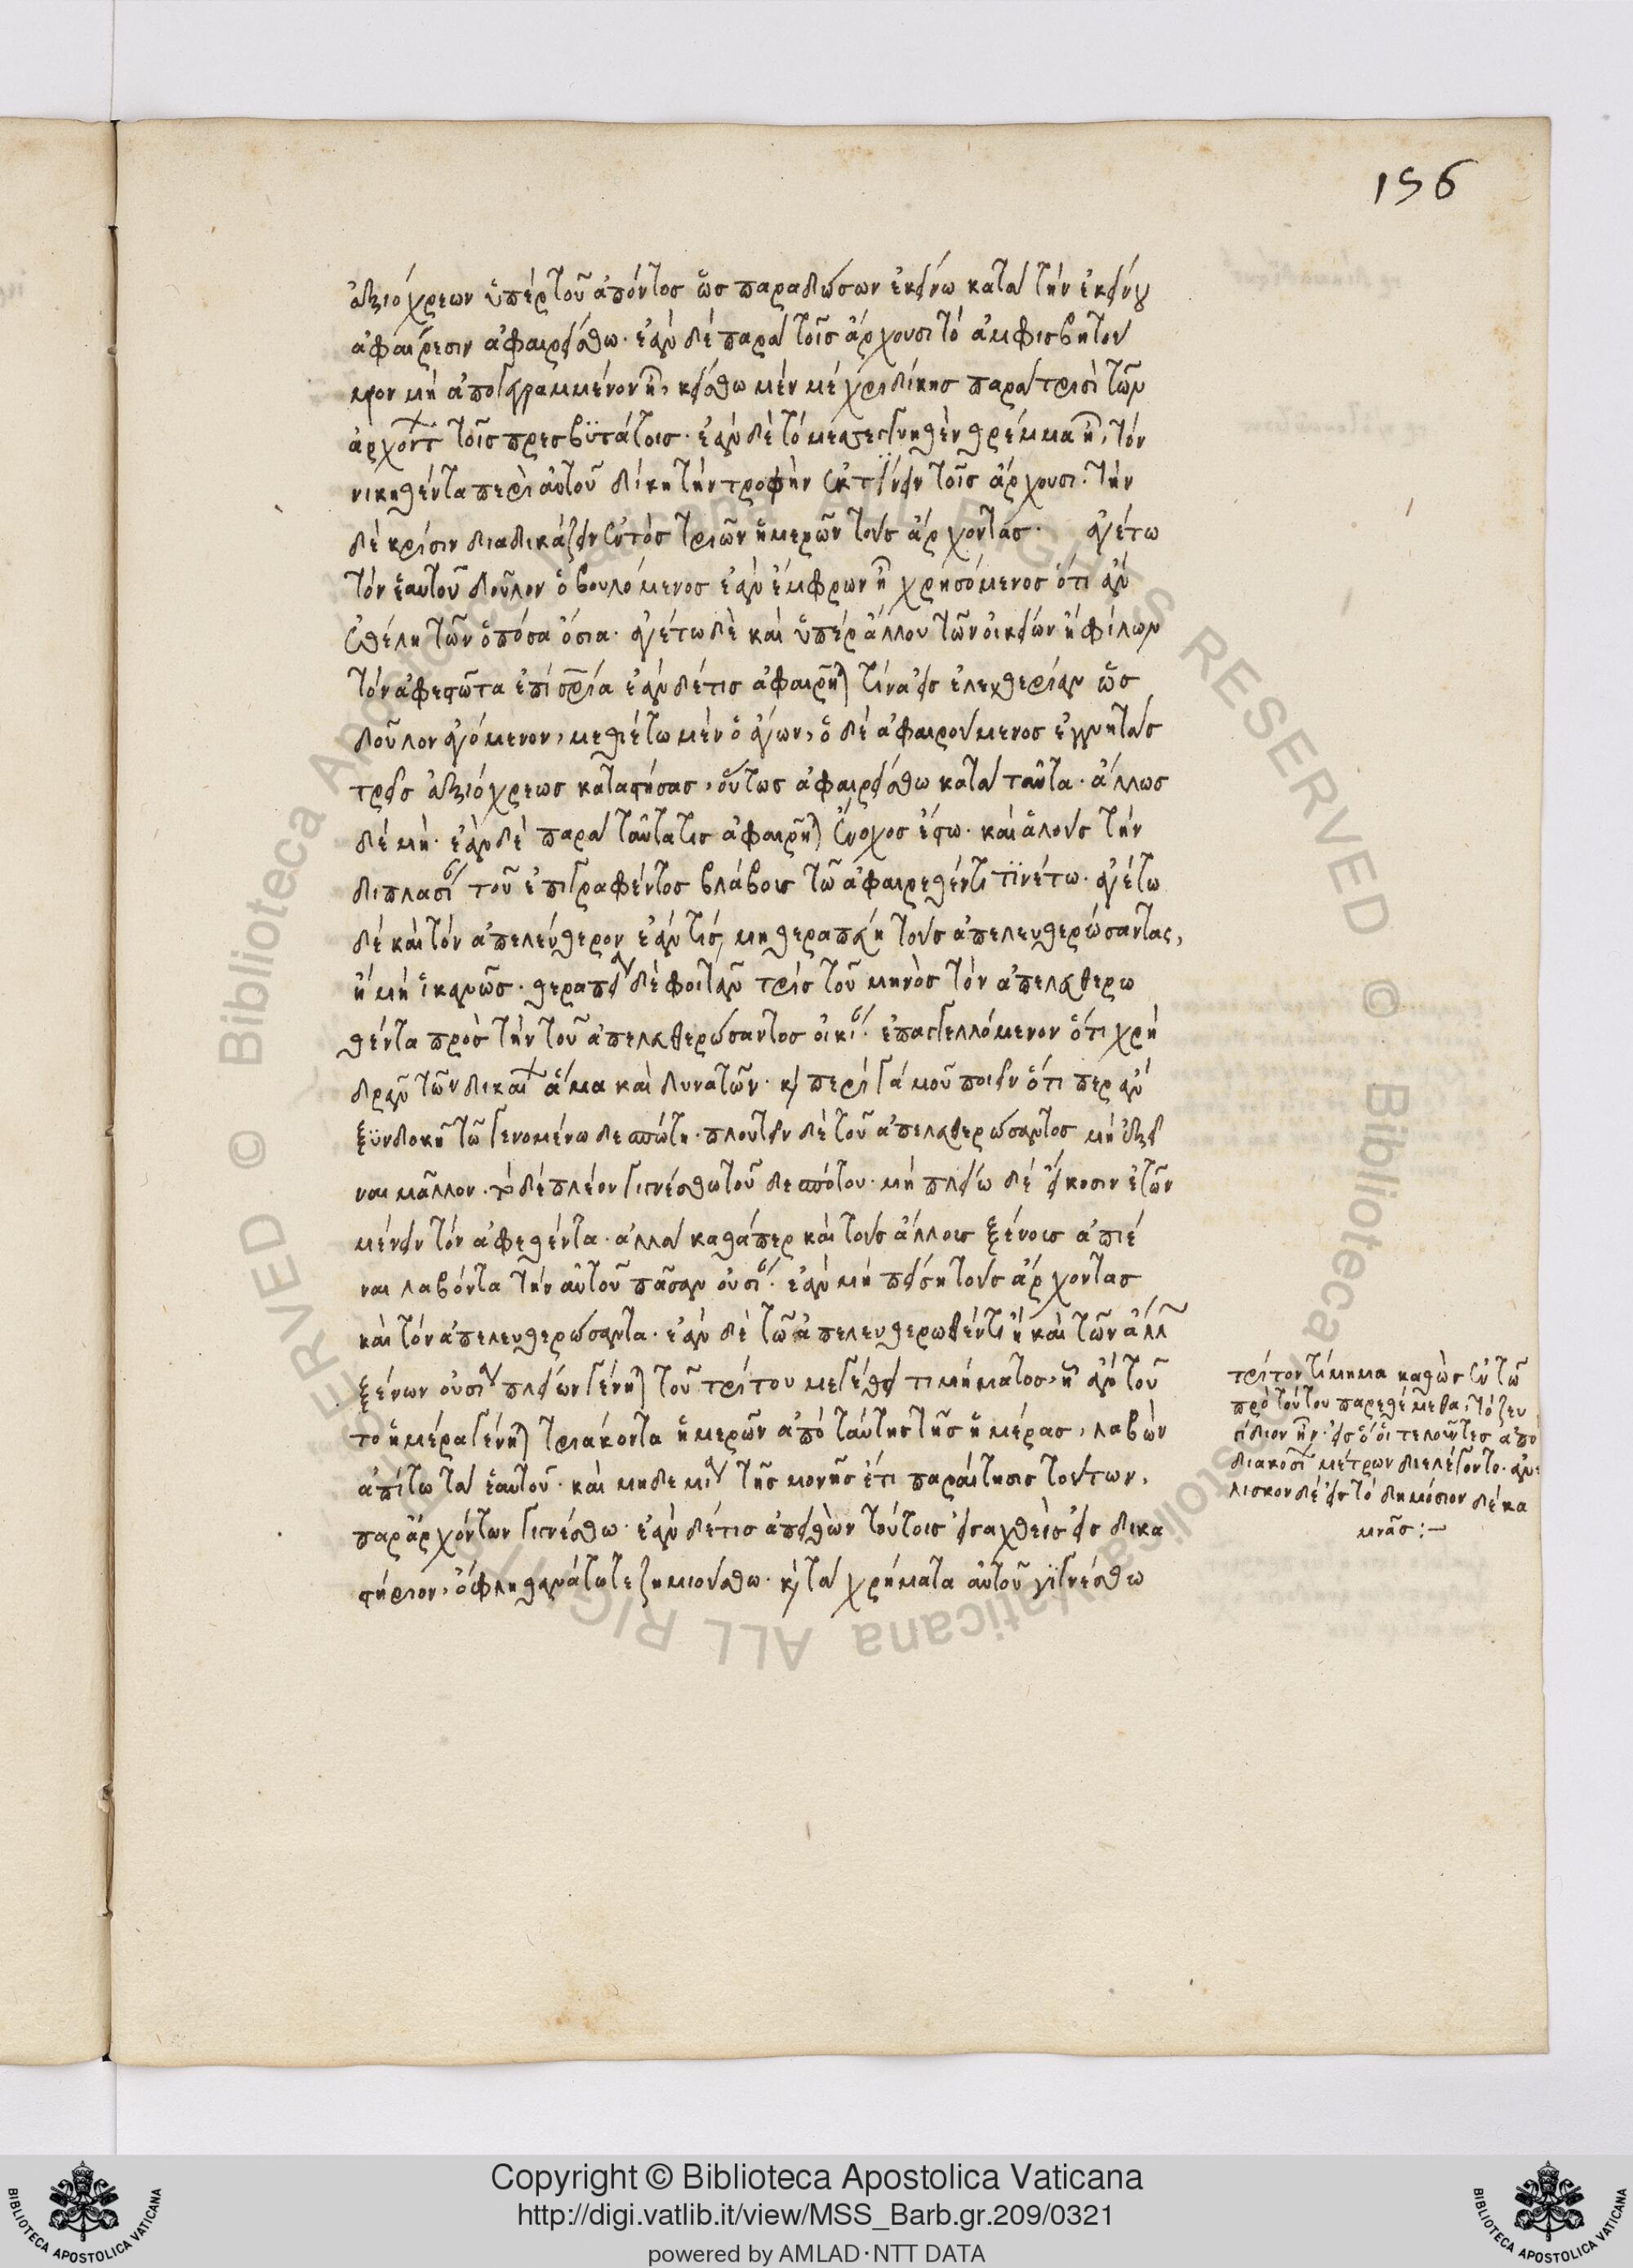 156
ἀξιόχρεων ὑπὲρ τοῦ ἀπόντος ὡς παραδώσων ἐκείνω κατὰ τὴν ἐκείνου
ἀφαίρεσιν ἀφαιρείσθω· ἐὰν δὲ παρὰ τοῖς ἄρχουσι τὸ ἀμφισβητού
μενον μὴ ἀπογεγραμμένον ἦ, κείσθω μὲν μέχρι δίκης παρὰ τρισὶ τῶν
ἀρχόντ τοῖς πρεσβϋτάτοις· ἐὰν δὲ τὸ μεσεγγυηθὲν θρέμμα ἦ, τὸν
νικηθέντα περὶ αὐτοῦ δίκη τὴν τροφὴν ἐκτίνειν τοῖς ἄρχουσι· τὴν
δὲ κρίσιν διαδικάζειν ἐντὸς τριῶν ἡμερῶν τοὺς ἄρχοντας· ἀγέτω
τὸν ἑαυτοῦ δοῦλον ὁ βουλόμενος ἐὰν ἔμφρων ἦ χρησόμενος ὅτι ἂν
ἐθέλη τῶν ὁπόσα ὅσια· ἀγέτω δὲ καὶ ὑπὲρ ἄλλου τῶν οἰκείων ἢ φίλων
τὸν ἀφεστῶτα ἐπὶ σωτηρία ἐὰν δέ τις ἀφαιρῆται τινὰ εἰς ἐλευθερίαν ὡς
δοῦλον ἀγόμενον, μεθιέτω μὲν ὁ ἄγων, ὁ δὲ ἀφαιρούμενος ἐγγυητὰς
τρεῖς ἀξιόχρεως καταστήσας, οὕτως ἀφαιρείσθω κατὰ ταῦτα· ἄλλως
δὲ μή· ἐὰν δὲ παρὰ ταῦτα τις ἀφαιρῆται ἔνοχος ἔστω· καὶ ἁλοὺς τὴν
διπλασί τοῦ ἐπιγραφέντος βλάβους τῶ ἀφαιρεθέντι τϊνέτω· ἀγέτω
δὲ καὶ τὸν ἀπελεύθερον ἐάν τις μὴ θεραπεύη τοὺς ἀπελευθερώσαντας,
ἢ μὴ ἱκανῶς· θεραπεί δὲ φοιτᾶν τρὶς τοῦ μηνὸς τὸν ἀπελευθερω
θέντα πρὸς τὴν τοῦ ἀπελευθερώσαντος οἰκί· ἐπαγγελλόμενον ὅτι χρὴ
δρᾶν τῶν δικαί ἅμα καὶ δυνατῶν· καὶ περὶ γάμου ποιεῖν ὅτι περ ἂν
ξϋνδοκῆ τῶ γενομένω δεσπότη· πλουτεῖν δὲ τοῦ ἀπελευθερώσαντος μὴ ἐξεῖ
ναι μᾶλλον· τὸ δὲ πλέον γιγνέσθω τοῦ δεσπότου· μὴ πλείω δὲ εἴκοσιν ἐτῶν
μένειν τὸν ἀφεθέντα· ἀλλὰ καθάπερ καὶ τοὺς ἄλλους ξένους ἀπιέ
ναι λαβόντα τὴν αὑτοῦ πᾶσαν οὐσί· ἐὰν μὴ πείση τοὺς ἄρχοντας
καὶ τὸν ἀπελευθερώσαντα· ἐὰν δὲ τῶ ἀπελευθερωθέντι ἢ καὶ τῶν ἄλλ
ξένων οὐσί πλείων γένηται τοῦ τρίτου μεγέθει τιμήματος, ἧ ἂν τοῦ
το ἡμέρα γένηται τριάκοντα ἡμερῶν ἀπὸ ταύτης τῆς ἡμέρας, λαβὼν
ἀπίτω τὰ ἑαυτοῦ· καὶ μηδεμί τῆς μονῆς ἔτι παραίτησις τούτων,
παρ ἀρχόντων γιγνέσθω· ἐὰν δέ τις ἀπειθῶν τούτοις εἰσαχθεὶς εἰς δικα
στήριον, ὄφλη θανάτω τε ζημιούσθω· καὶ τὰ χρήματα αὐτοῦ γιγνέσθω
τρίτον τίμημα καθὼς ἐν τῶ
πρὸ τούτου παρεθέμεθα, τὸ ζευ
γίδιον ἦν· εἰς ὃ οἱ τελοῦντες ἀπὸ
διακοσί μέτρων διελέγοντο· ἀνά
λισκον δὲ εἰς τὸ δημόσιον δέκα
μνᾶς:—
Copyright © Biblioteca Apostolica Vaticana
http://digi.vatlib.it/view/MSS_Barb.gr.209/0321
powered by AMLAD·NTT DATA